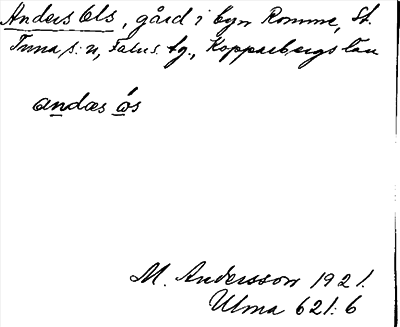 Anders Ols, gård i byn Romme, St.
Tuna s:n, Falus tg., Kopparbergs län
andæs ós
M. Andersson 1921.
Ulma 621:6